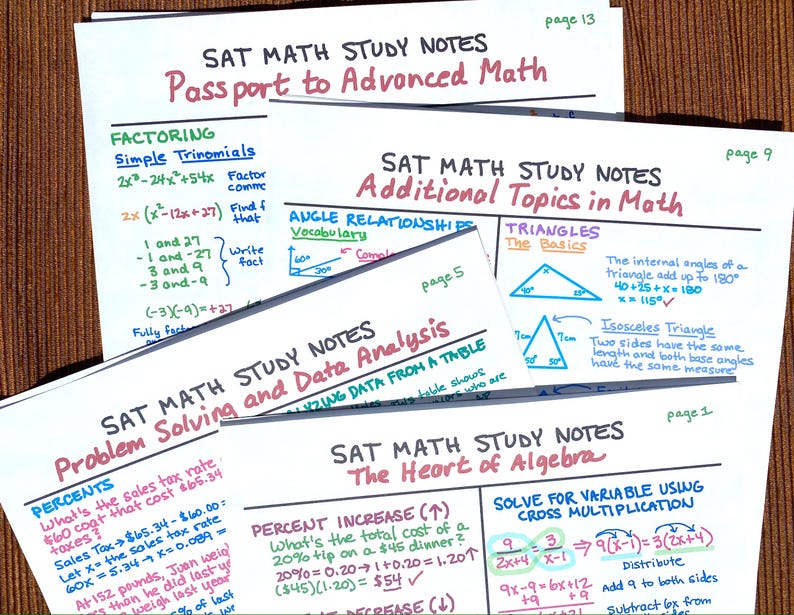 page 13
SAT MATH STUDY NOTES
Passport to Advanced Math
FACTORING
Simple Trinomials
2x³-24x²+54x Factor
commo
2x (x²-12x+27) Find f
that
1 and 27
-1 and -27
3 and 9
-3 and -9
Write
fact
(-3)(-9)=+27
Fully facto
page 9
SAT MATH STUDY NOTES
Additional Topics in Math
ANGLE RELATIONSHIPS
Vocabulary
60°
30°
Comple
TRIANGLES
The Basics
x
40° 25°
The internal angles of a
triangle add up to 180°
40+25+x=180
x = 115° ✓
7cm 7cm
50° 50°
Isosceles Triangle
Two sides have the same
length and both base angles
have the same measure
page 5
SAT MATH STUDY NOTES
Problem Solving and Data Analysis
LYZING DATA FROM A TABLE
table shows
who are
PERCENTS
What's the sales tax rate
$60 coat that cost $65.34
taxes?
Sales Tax→$65.34-$60.00=
Let x = the sales tax rate
60x = 5.34→x=0.089=
At 152 pounds, Juan weigh
less than he did last ye
weigh last year
% of last
page 1
SAT MATH STUDY NOTES
The Heart of Algebra
PERCENT INCREASE (↑)
What's the total cost of a
20% tip on a $45 dinner?
20% = 0.20→1+0.20=1.20↑
($45)(1.20) = $54 ✓
PERCENT DECREASE (↓)
SOLVE FOR VARIABLE USING
CROSS MULTIPLICATION
9/2x+4 = 3/x-1 ⇒ 9(x-1)=3(2x+4)
Distribute
9x-9=6x+12
+9 +9
Add 9 to both sides
Subtract 6x from